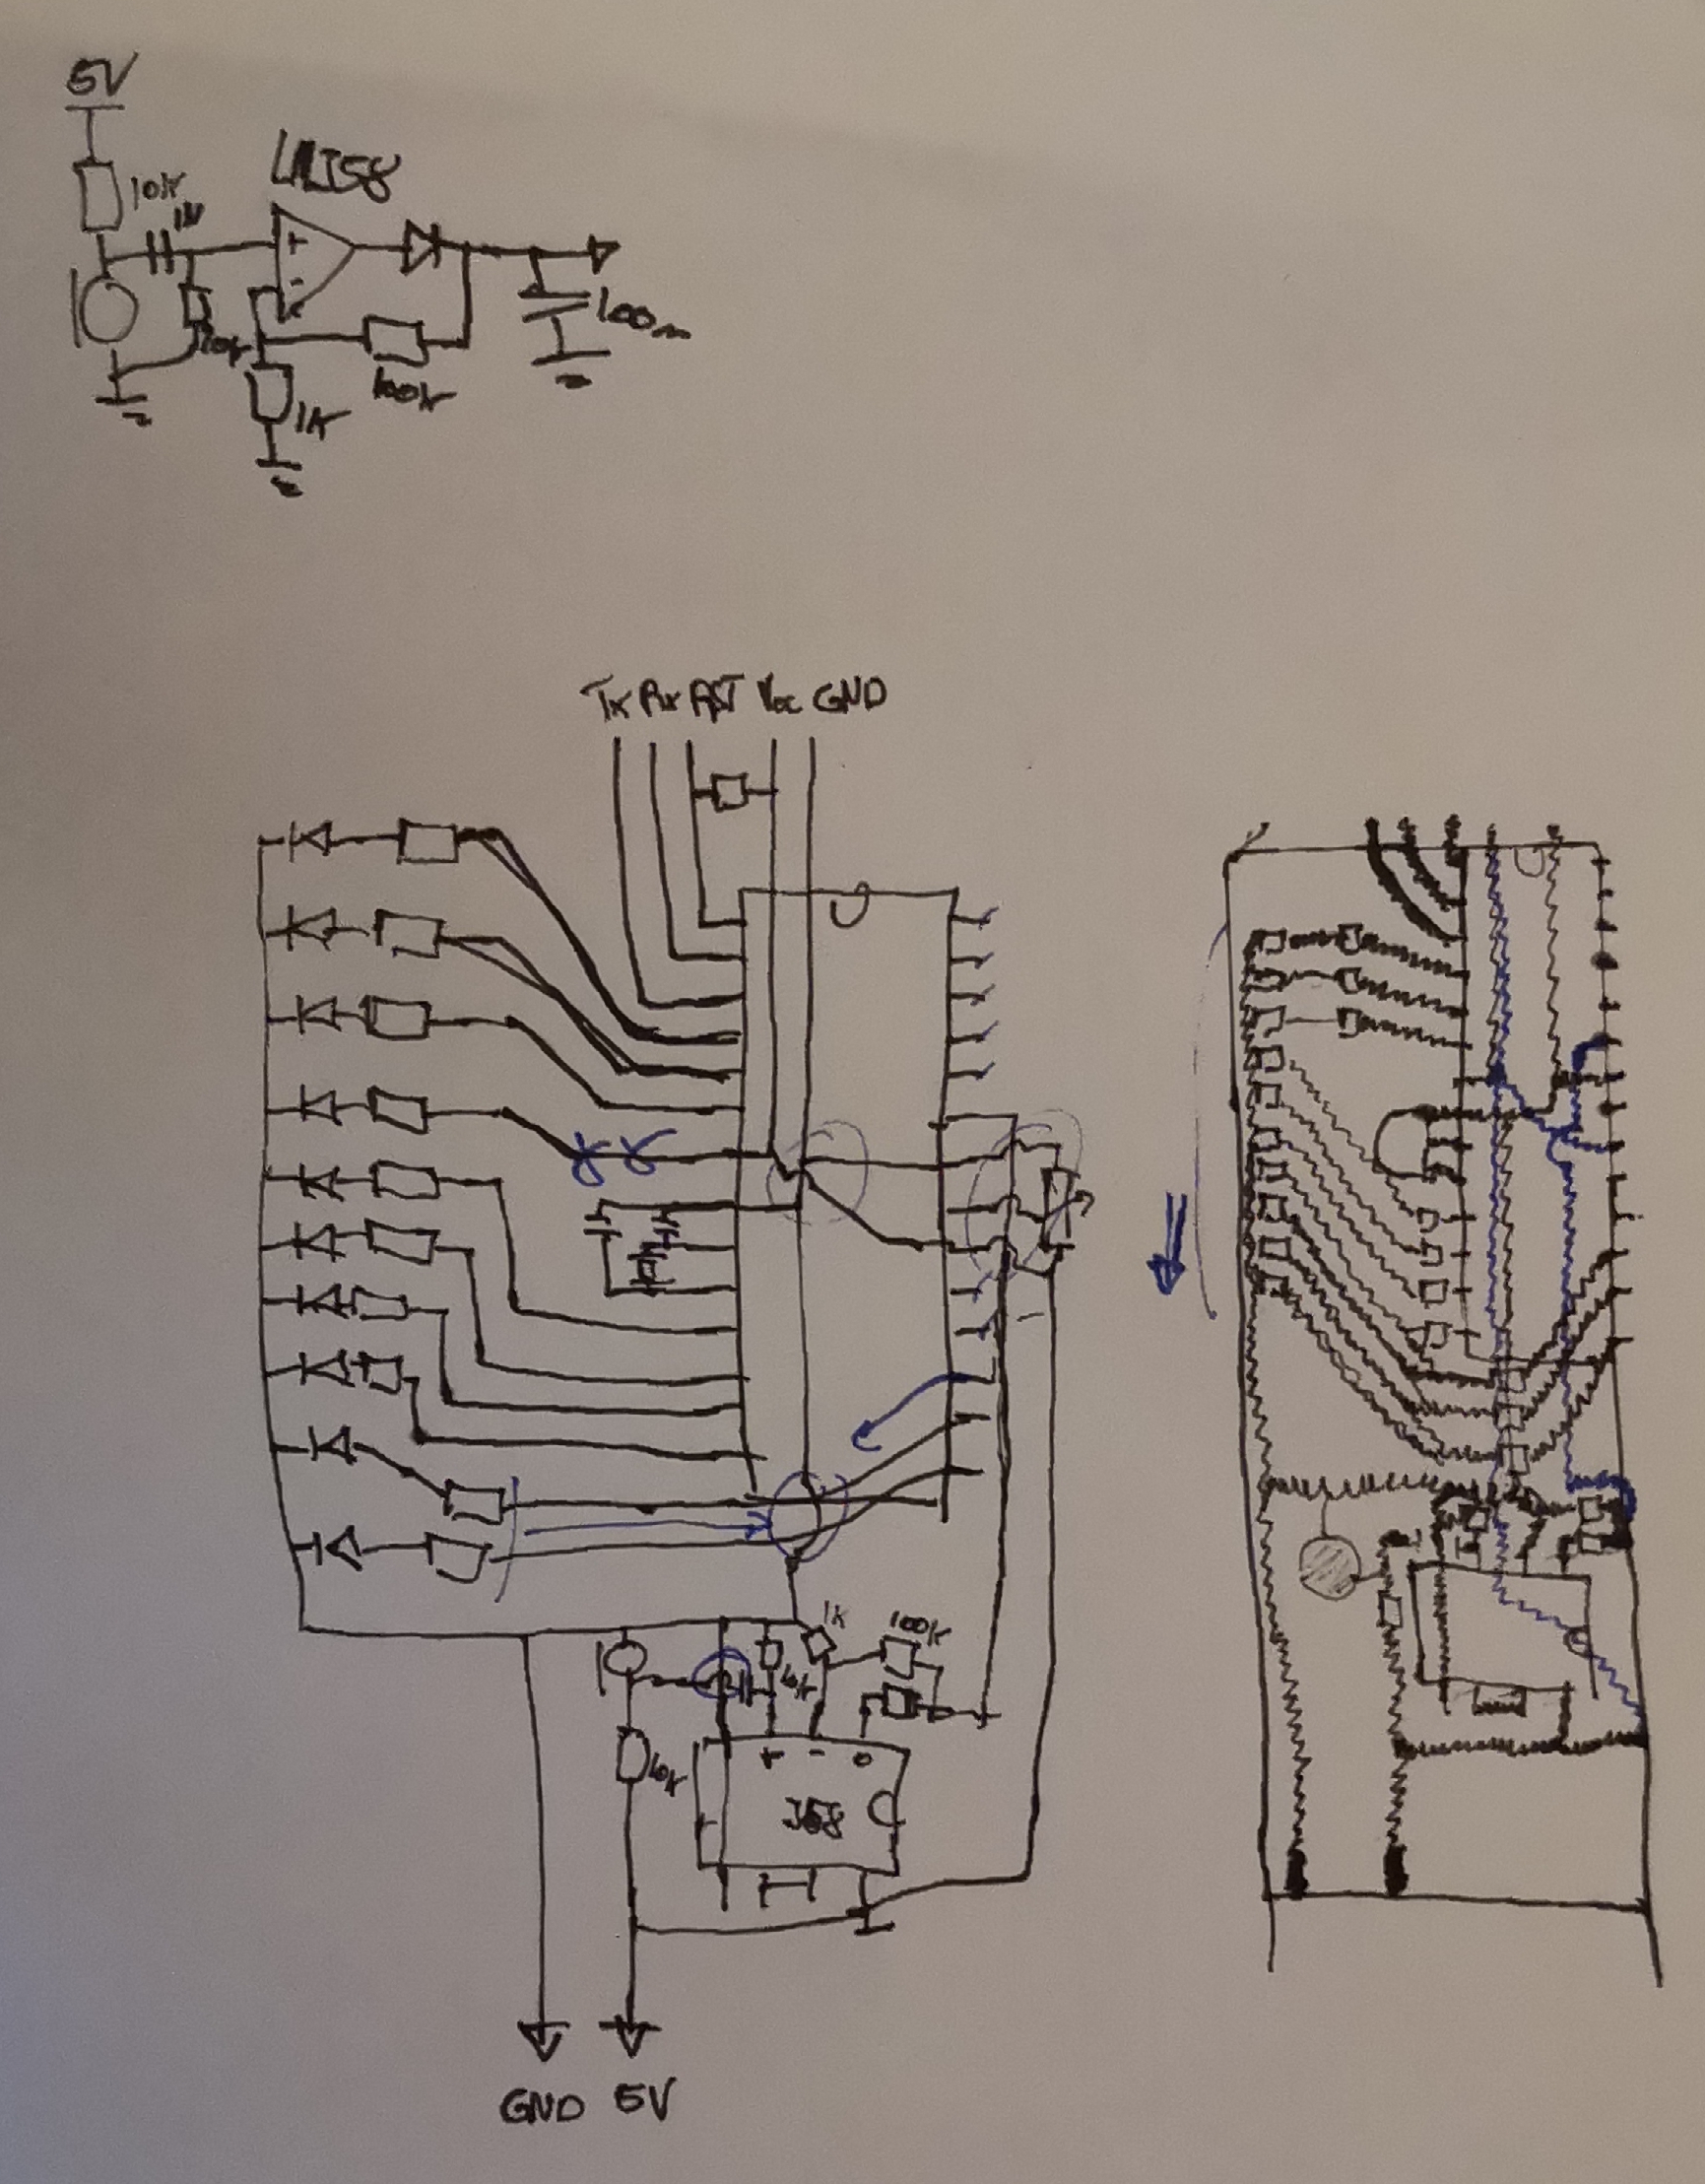 5V
LM358
10k
1M
+
-
10k
100n
100k
1k
Tx Rx RST Vcc GND
1k
100k
10k
10k
+ - o
358
GND 5V